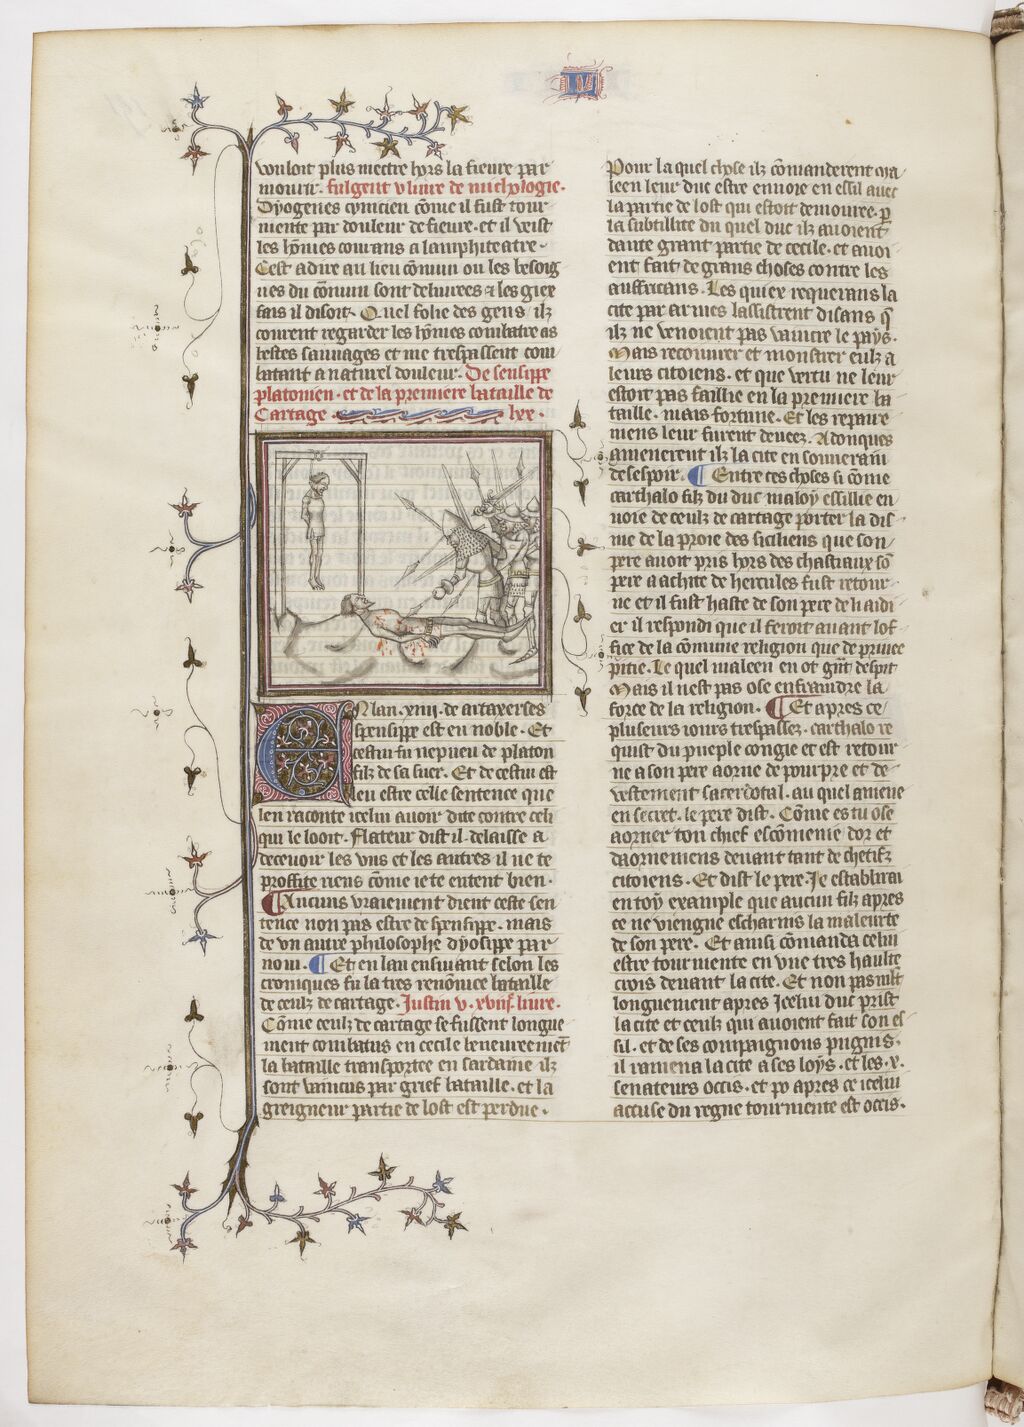 IIII
vouloit plus mectre hors la fieure par
mourir. fulgent v liure de michologie.
Dyogenes cynicien cõme il fust tour
mente par douleur de fieure. et il veist
les hõmes courans a lamphiteatre.
Cest adire au lieu cõmun ou les besoig
nes du cõmun sont deliurees et les giex
fais il disoit. Quel folie des gens ilz
courent regarder les hõmes combatre as
bestes sauuages et me trespassent com
batant a naturel douleur. De seusippe
platonien. et de la premiere bataille de
Cartage. lxx.
EN lan .xiiij. de artaxerses
speusippe est en noble. Et
cestui fu nepueu de platon
filz de sa suer. Et de cestui est
leu estre celle sentence que
len raconte icelui auoir dite contre celi
qui le looit. Flateur dist il. delaisse a
deceuoir les vns et les autres il ne te
proffite riens cõme ie te entent bien.
Aucuns vraiement dient ceste sen
tence non pas estre de speusippe. mais
de vn autre philosophe dyosippe par
nom. Et en lan ensuiuant selon les
croniques fu la tres renõmee bataille
de ceulz de cartage. Justin v. xviije. liure.
Cõme ceulz de cartage se fussent longue
ment combatus en cecile beneureemẽt
la bataille transportee en sardaine ilz
sont vaincus par grief bataille. et la
greigneur partie de lost est perdue.
Pour la quel chose ilz cõmanderent ma
leen leur duc estre enuoie en essil auec
la partie de lost qui estoit demouree. p̱
la subtillite du quel duc ilz auoient
dante grant partie de cecile. et auoi
ent fait de grans choses contre les
auffricans. Les quiex requerans la
cite par armes lassistrent disans q̃
ilz ne venoient pas vaincre le pays.
Mais recouurer et monstrer eulz a
leurs citoiens. et que vertu ne leur
estoit pas faillie en la premiere ba
taille. mais fortune. Et les repaire
mens leur furent deueez. Adonques
amenerent ilz la cite en souuerain
desespoir. Entre ces choses si cõme
carthalo filz du duc maloy essillie en
uoie de ceulz de cartage porter la dis
me de la proie des siciliens que son
pere auoit pris hors des chastiaux sõ
pere a achite de hercules fust retour
ne et il fust haste de son pere de li aidi
er il respondi que il feroit auant lof
fice de la cõmune religion que de priuee
pitie. Le quel maleen en ot grãt despit
Mais il nest pas ose enfraindre la
force de la religion. Et apres ce
plusieurs iours trespassez. carthalo re
quist du pueple congie et est retour
ne a son pere aorne de pourpre et de
vestement sacerdotal. au quel amene
en secret. le pere dist. Cõme es tu ose
aorner ton chief escõmenie dor et
daornemens deuant tant de chetifz
citoiens. Et dist le pere. Je establirai
en toy example que aucun filz apres
ce ne viengne escharnis la maleurte
de son pere. Et ainsi cõmanda celui
estre tourmente en vne tres haulte
crois deuant la cite. Et non pas mlt̃
longuement apres Icelui duc prist
la cite et ceulz qui auoient fait son es
sil. et de ses compaignons pugnis.
il ramena la cite a ses loys. et les .x.
senateurs occis. et po apres ce icelui
accuse du regne tourmente est occis.